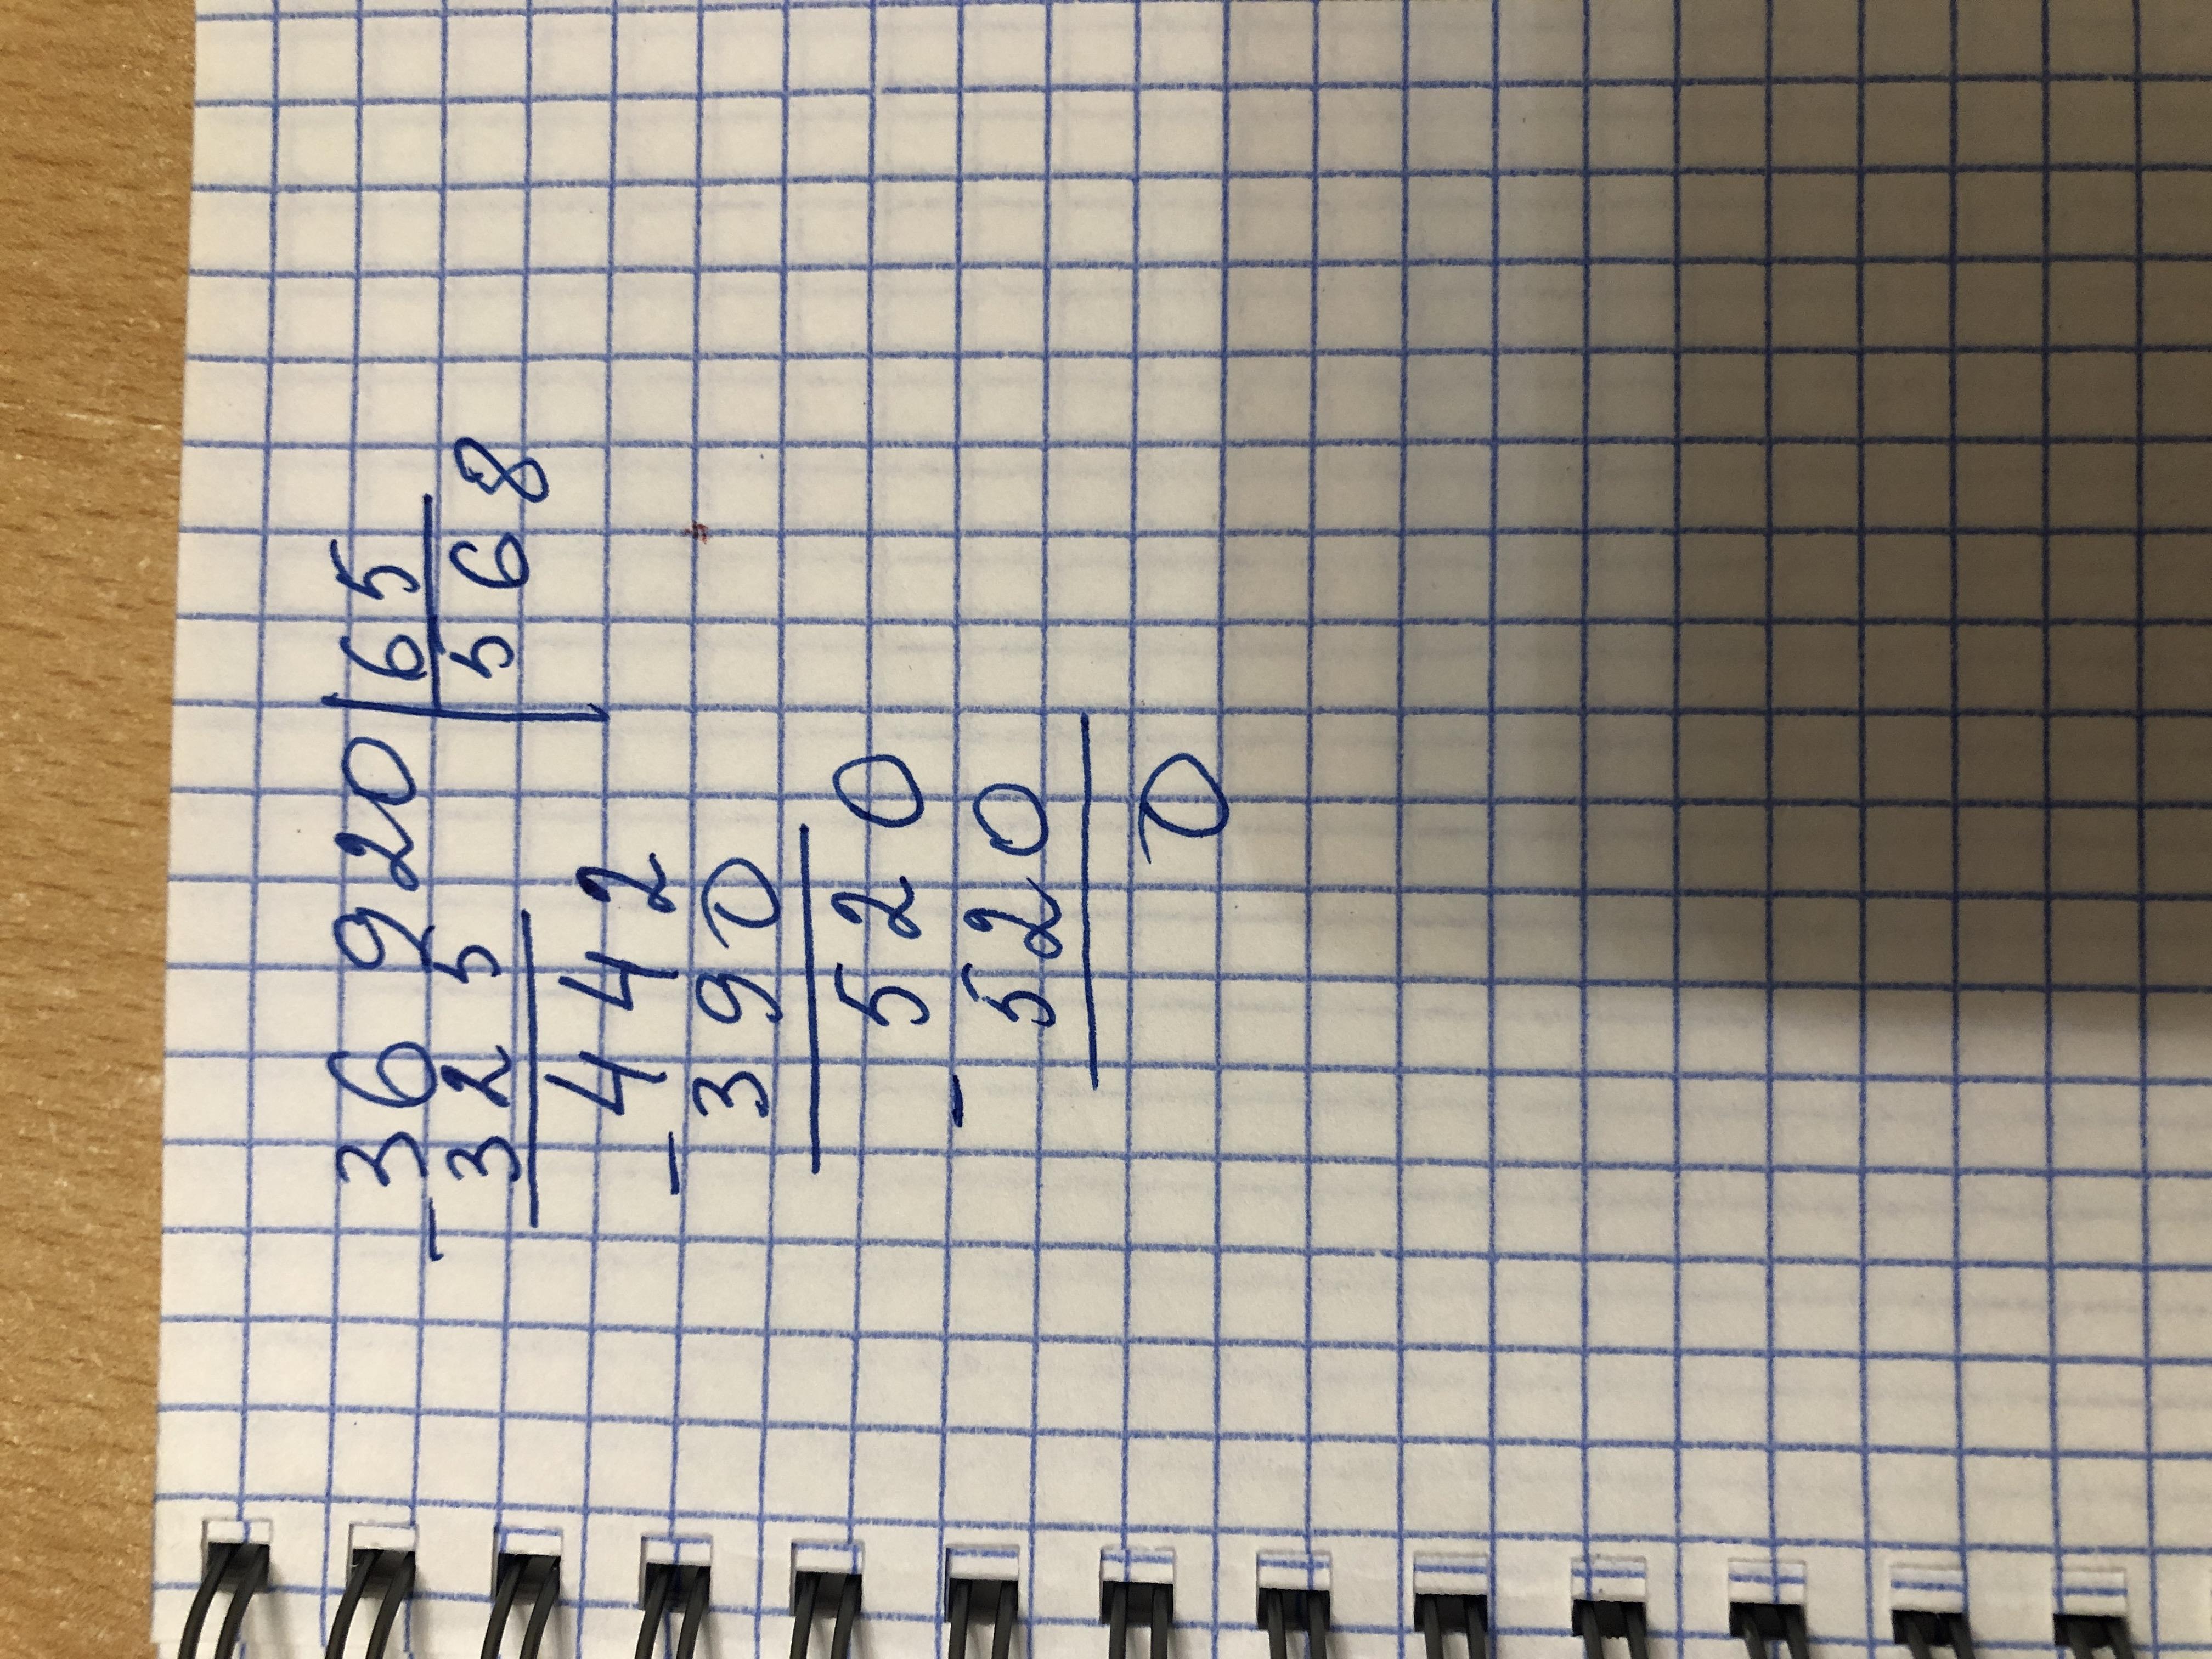 36920 | 65
- 325 | 568
442
- 390
520
- 520
0